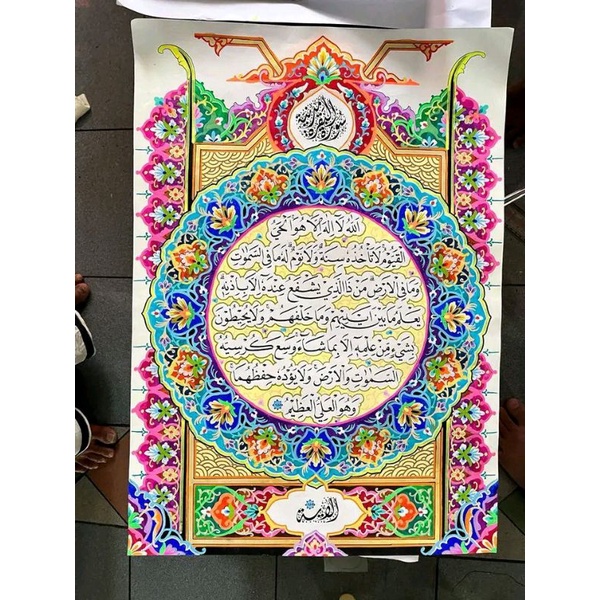 سورة البقرة مدنية
الله لا اله الا هو الحي
القيوم لا تأخذه سنة ولا نوم له ما في السموت
وما في الارض من ذا الذي يشفع عنده الا باذنه
يعلم ما بين ايديهم وما خلفهم ولا يحيطون
بشيء من علمه الا بما شاء وسع كرسيه
السموت والارض ولا يؤده حفظهما
وهو العلي العظيم